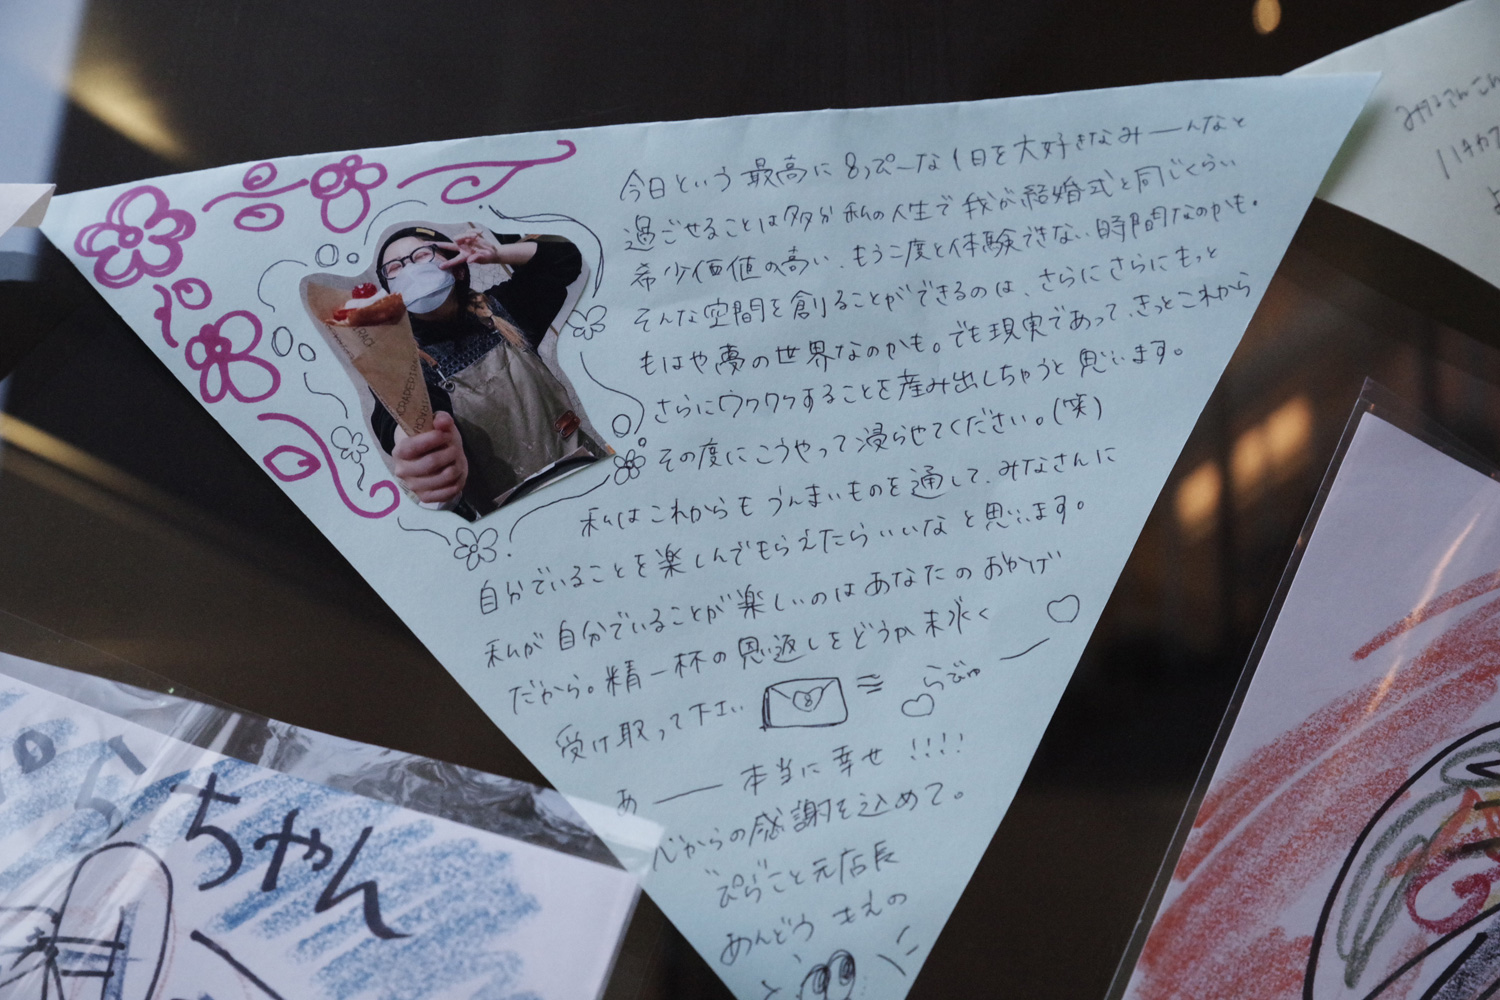 今日という最高に8っぴーな1日を大好きなみーんなと
過ごせることは多分私の人生で我が結婚式と同じくらい
希少価値の高い、もう二度と体験できない時間なのかも。
そんな空間を創りることができるのは、さらにさらにもっと
もはや夢の世界なのかも。でも現実であって、きっとこれから
さらにワクワクすることを産み出しちゃうと思います。
その度にこうやって浸らせてください。(笑)
私はこれからもうんまいものを通して、みなさんに
自分でいることを楽しんでもらえたらいいなと思います。
私が自分でいることが楽しいのはあなたのおかげ
だから。精一杯の恩返しをどうか末永く
受け取って下さい
らびゅー
あー本当に幸せ!!!!
心からの感謝を込めて。
"ぴら"こと元店長
あんどう さえの
ちゃん
CRAPEDIRACI